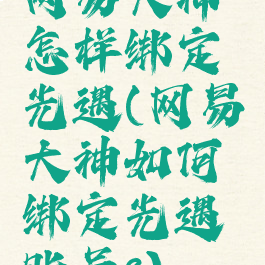 网易大神
怎样绑定
先遇(网易
大神如何
绑定先遇
账号?)